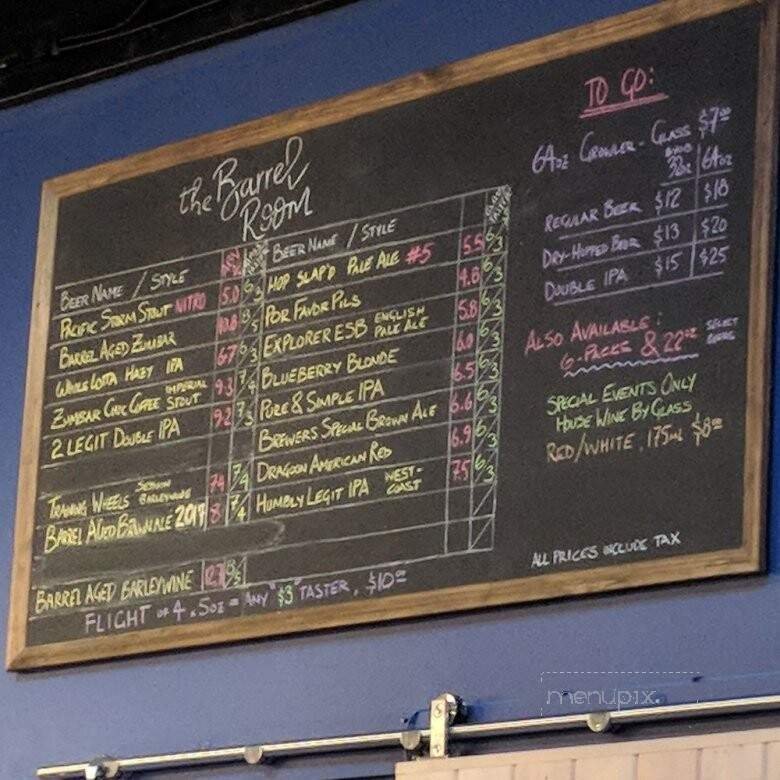 the Barrel
Room
BEER NAME / STYLE
PACIFIC STORM STOUT NITRO 5.0 6/3
BARREL AGED ZUMBAR 10.8 8/5
WHOLE LOTTA HAZY IPA 6.7 6/3
ZUMBAR CHOC COFFEE IMPERIAL STOUT 9.3 7/4
2 LEGIT DOUBLE IPA 9.2 7/3
TRAINING WHEELS SESSION BARLEYWINE 7.4 7/4
BARREL AGED BROWN ALE 2017 8 7/4
BARREL AGED BARLEYWINE 12.7 8/5
BEER NAME / STYLE
HOP SLAP'D PALE ALE #5 5.5 6/3
POR FAVOR PILS 4.8 6/3
EXPLORER ESB ENGLISH PALE ALE 5.8 6/3
BLUEBERRY BLONDE 6.0 6/3
PURE & SIMPLE IPA 6.5 6/3
BREWERS SPECIAL BROWN ALE 6.6 6/3
DRAGOON AMERICAN RED 6.9 6/3
HUMBLY LEGIT IPA WEST-COAST 7.5 6/3
FLIGHT OF 4 x 5oz = ANY "$3" TASTER, $10.00
TO GO:
64oz GROWLER - GLASS $7.00
32oz 64oz
REGULAR BEER $12 $18
DRY-HOPPED BEER $13 $20
DOUBLE IPA $15 $25
ALSO AVAILABLE:
6-PACKS & 22oz SELECT BEERS
SPECIAL EVENTS ONLY
HOUSE WINE BY GLASS
RED/WHITE, 175mL $8.00
ALL PRICES INCLUDE TAX
menupix.